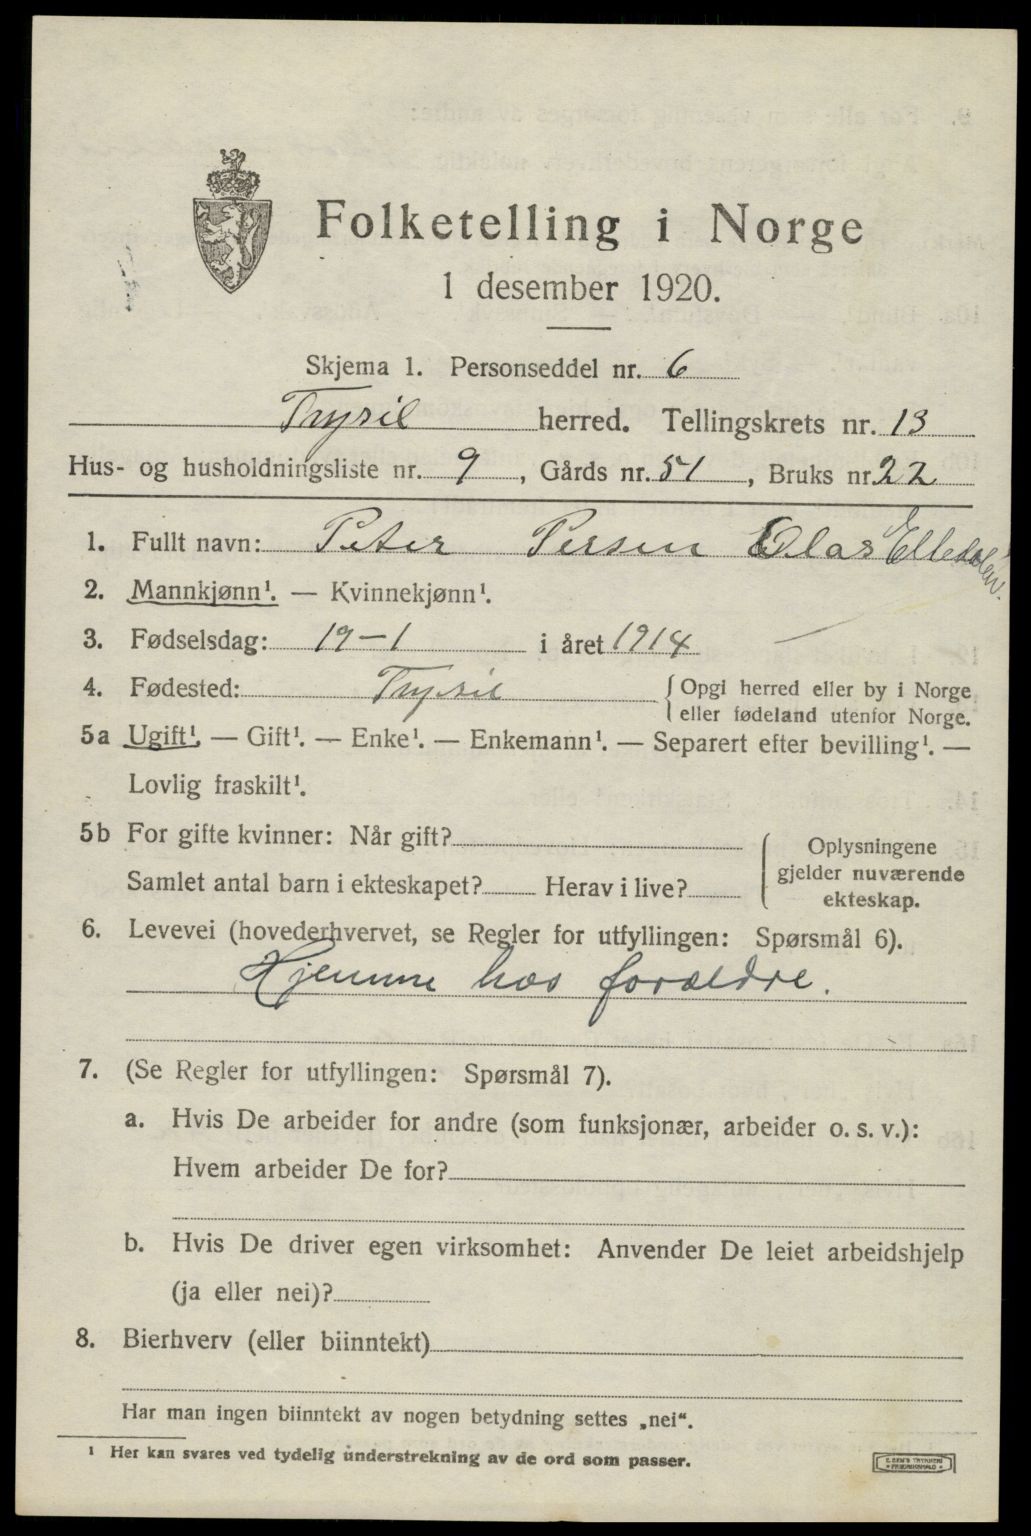 Folketelling i Norge
1 desember 1920.
Skjema 1. Personseddel nr. 6
Trysil herred. Tellingskrets nr. 13
Hus- og husholdningsliste nr. 9, Gårds nr. 51, Bruks nr. 22
1. Fullt navn: Peter Persen
2. Mannkjønn¹. — Kvinnekjønn¹.
3. Fødselsdag: 19-1 i året 1914
4. Fødested: Trysil { Opgi herred eller by i Norge
eller fødeland utenfor Norge.
5a Ugift¹. — Gift¹. — Enke¹. — Enkemann¹. — Separert efter bevilling¹. —
Lovlig fraskilt¹.
5b For gifte kvinner: Når gift?
Samlet antal barn i ekteskapet? Herav i live?
Oplysningene
gjelder nuværende
ekteskap.
6. Levevei (hovederhvervet, se Regler for utfyllingen: Spørsmål 6).
Hjemme hos forældre.
7. (Se Regler for utfyllingen: Spørsmål 7).
a. Hvis De arbeider for andre (som funksjonær, arbeider o. s. v.):
Hvem arbeider De for?
b. Hvis De driver egen virksomhet: Anvender De leiet arbeidshjelp
(ja eller nei)?
8. Bierhverv (eller biinntekt)
Har man ingen biinntekt av nogen betydning settes „nei“.
¹ Her kan svares ved tydelig understrekning av de ord som passer.